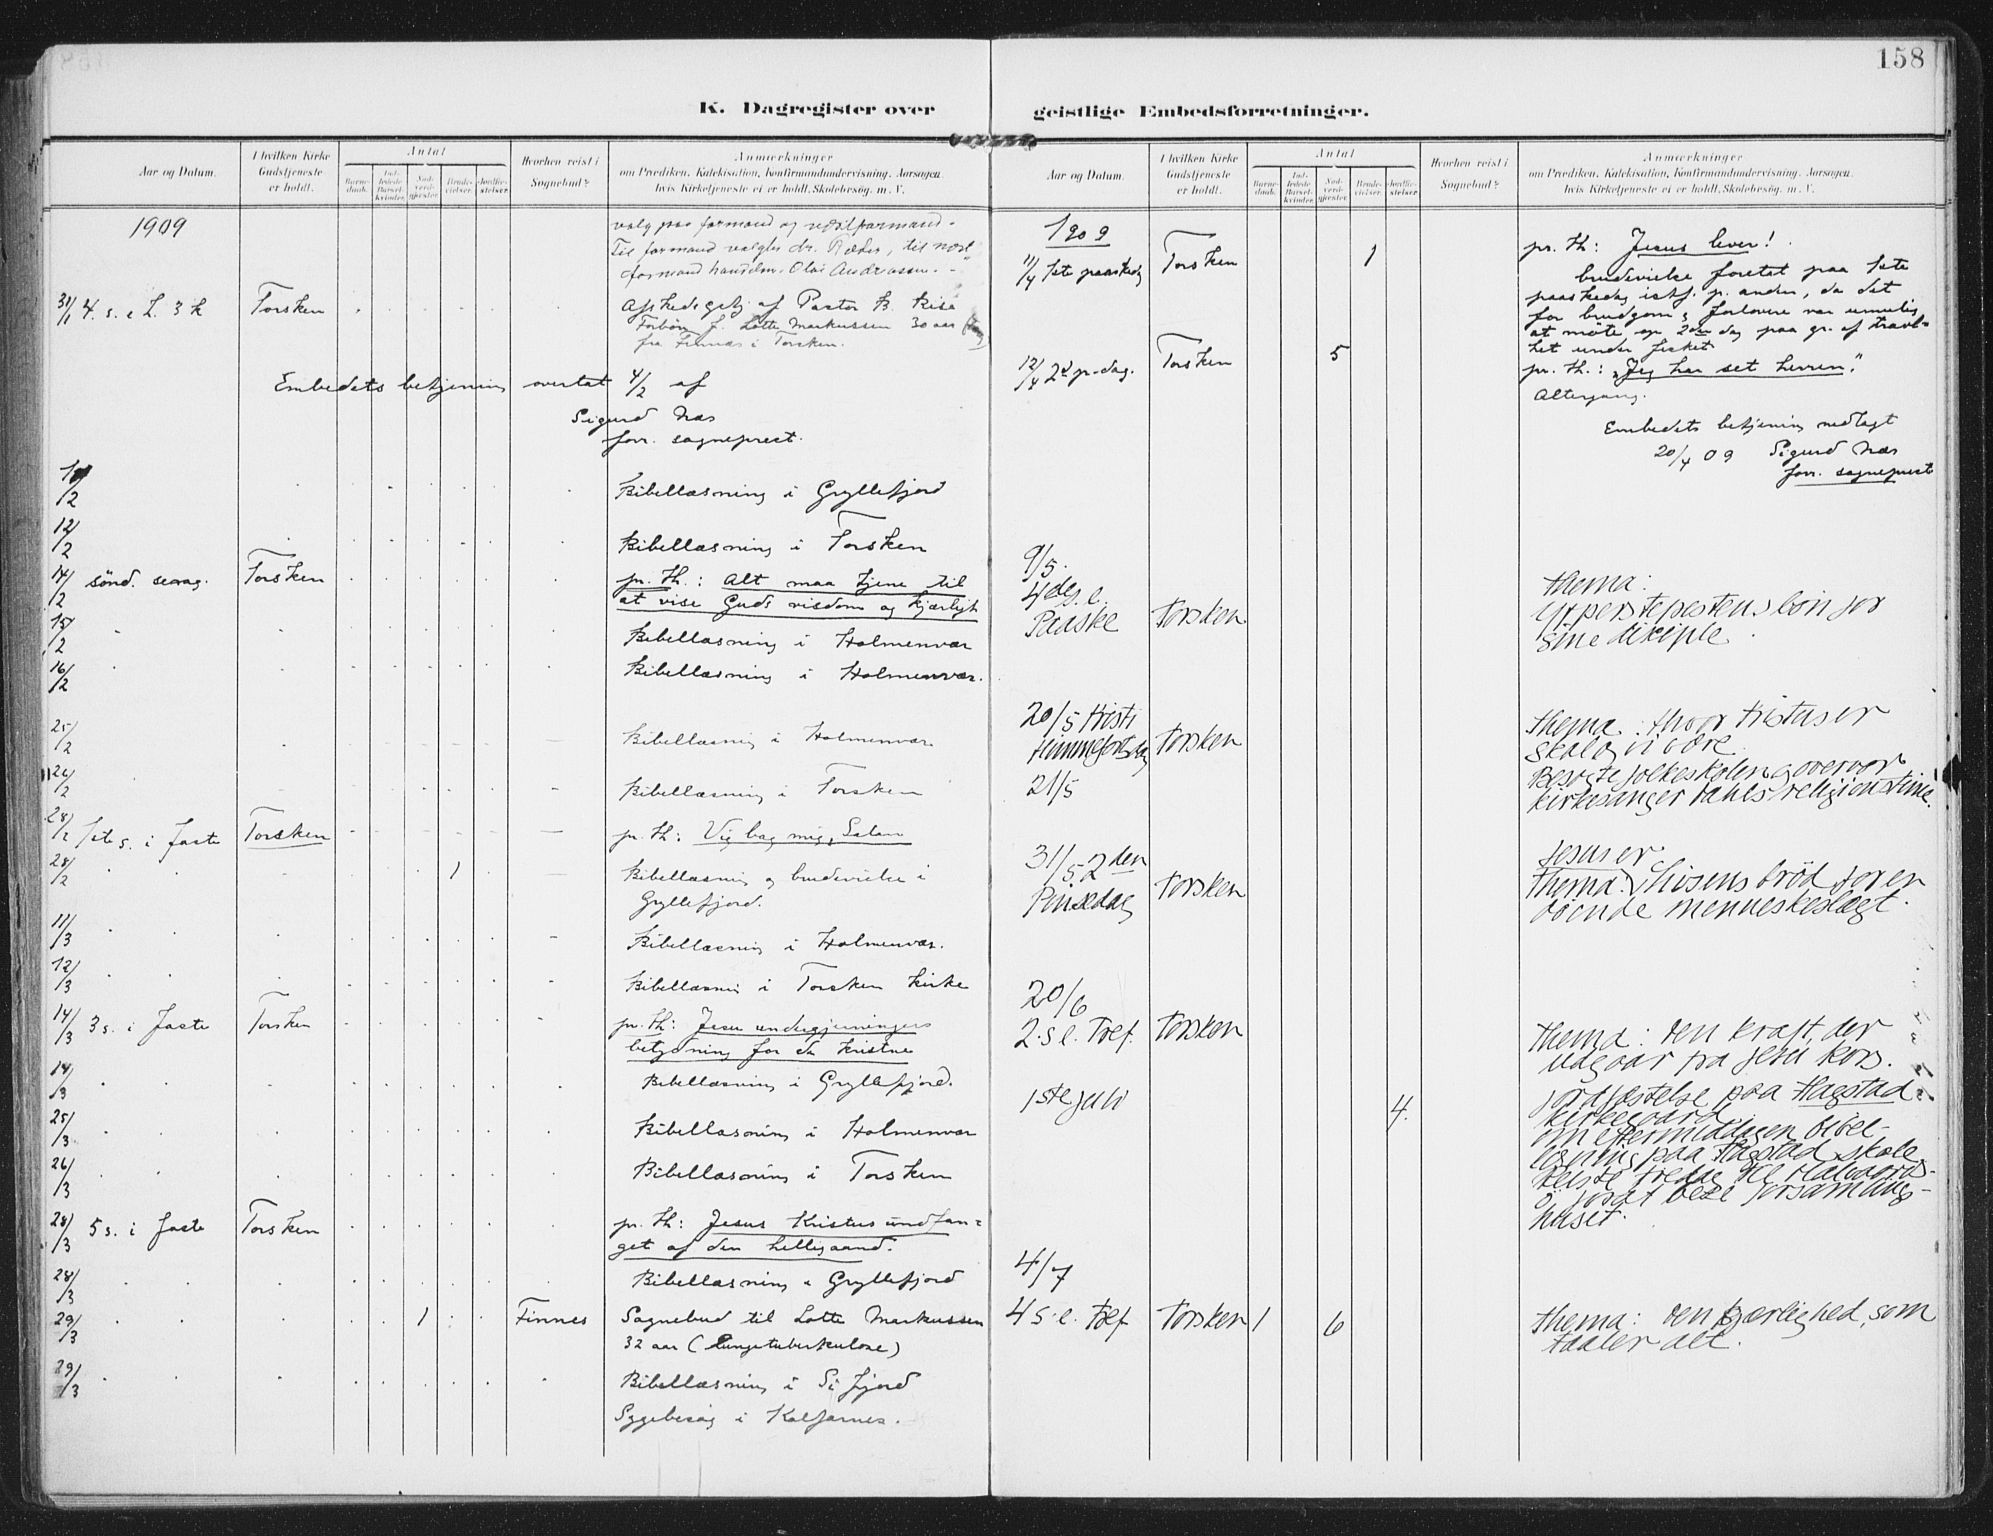 158
K. Dagregister over geistlige Embedsforretninger.
Aar og Datum.
I hvilken Kirke Gudstjeneste er holdt.
Antal
Barne-daab.
Ind-ledede Barsel-kvinder.
Nad-verd-gjæster.
Brude-vielser.
Jordfæ-stelser.
Hvorhen reist i Sognebud?
Anmærkninger
om Prædiken, Katekisation, Konfirmandundervisning, Aarsagen,
hvis Kirketjeneste ei er holdt, Skolebesøg, m. V.
1909
valg paa formand og næstformand.
Til formand valgtes dr. Ræder, til næst
formand handelsm. Olai Andreassen. -"
31/1 4. s. e. h. 3 k Torsken Afskedsgstj. af Pastor B. Risø
Forbøn f. Lotte Markussen 30 aar
fra Finnæs i Torsken.
Embedets betjening overtat 4/2 af
Sigurd Næs
forr. sogneprest.
/2 Bibellæsning i Gryllefjord
12/2 Bibellæsning i Torsken
14/2 sønd. sexag. Torsken pr. th.: Alt maa tjene til
at vise Guds visdom og kjærligh
15/2 " Bibellæsning i Holmenvær
16/2 " Bibellæsning i Holmenvær.
25/2 Bibellæsning i Holmenvær
26/2 Bibellæsning i Torsken
28/2 1ste s. i faste Torsken pr. th: Vig bag mig, Satan
28/2 " 1 Bibellæsning og brudevielse i
Gryllefjord.
11/3 Bibellæsning i Holmenvær.
12/3 Bibellæsnin i Torsken kirke
14/3 3 s. i faste Torsken pr. th: Jesu undergjerningers
betydning for de kristne
14/3 Bibellæsning i Gryllefjord.
25/3 Bibellæsning i Holmenvær
26/3 Bibellæsning i Torsken
28/3 5 s. i faste Torsken pr. th: Jesus Kristus undfan=
get af den helligaand.
28/3 Bibellæsning i Gryllefjord
29/3 1 Finnes Sognebud til Lotte Markussen
32 aar (Lungetuberkulose)
29/3 Bibellæsning i Sifjord
Sygebesøg i Kalfarnes.
Aar og Datum.
I hvilken Kirke Gudstjeneste er holdt.
Antal
Barne-daab.
Ind-ledede Barsel-kvinder.
Nad-verd-gjæster.
Brude-vielser.
Jordfæ-stelser.
Hvorhen reist i Sognebud?
Anmærkninger
om Prædiken, Katekisation, Konfirmandundervisning, Aarsagen,
hvis Kirketjeneste ei er holdt, Skolebesøg, m. V.
1909
11/4 1ste paaskedag Torsken 1 pr. th: Jesus lever!
brudevielse foretat paa 1ste
paaskedag istf. p. anden, da det
for brudgom og forlovere var umulig
at møte op 2den dag paa gr. af travl=
het under fisket
12/4 2d p-dag. Torsken 5 pr. th.: "Jeg har set herren."
Altergang.
Embedets betjening nedlagt
20/4 09 Sigurd Næs
forr. sogneprest
9/5.
4de s. e.
Paaske Torsken Thema:
Ypperstepestens bøn for
sine disiple.
20/5 Kristi
Himmelfartsdag Torsken Thema: Hvor Kristus er
skal og vi være
21/5 Besøgte folkeskolen og overvar
kirkesanger Dahls religionstime.
31/5 2den
Pinsedag Torsken Jesus er
Thema: Livsens brød for en
döende menneskeslægt.
20/6
2. s e. Tref. Torsken Thema: Den kraft, der
udgaar fra Jesu kors.
1ste juli 4. Jordfæstelse paa Hagstad
kirkegaard.
om eftermiddagen bibel-
læsning paa Hagstad skole.
Reiste fredag til
for at bese forsamlings-
huset.
4/7
4 s. e. Tref Torsken 1 6 Thema: Den kjærlighed, som
taaler alt.